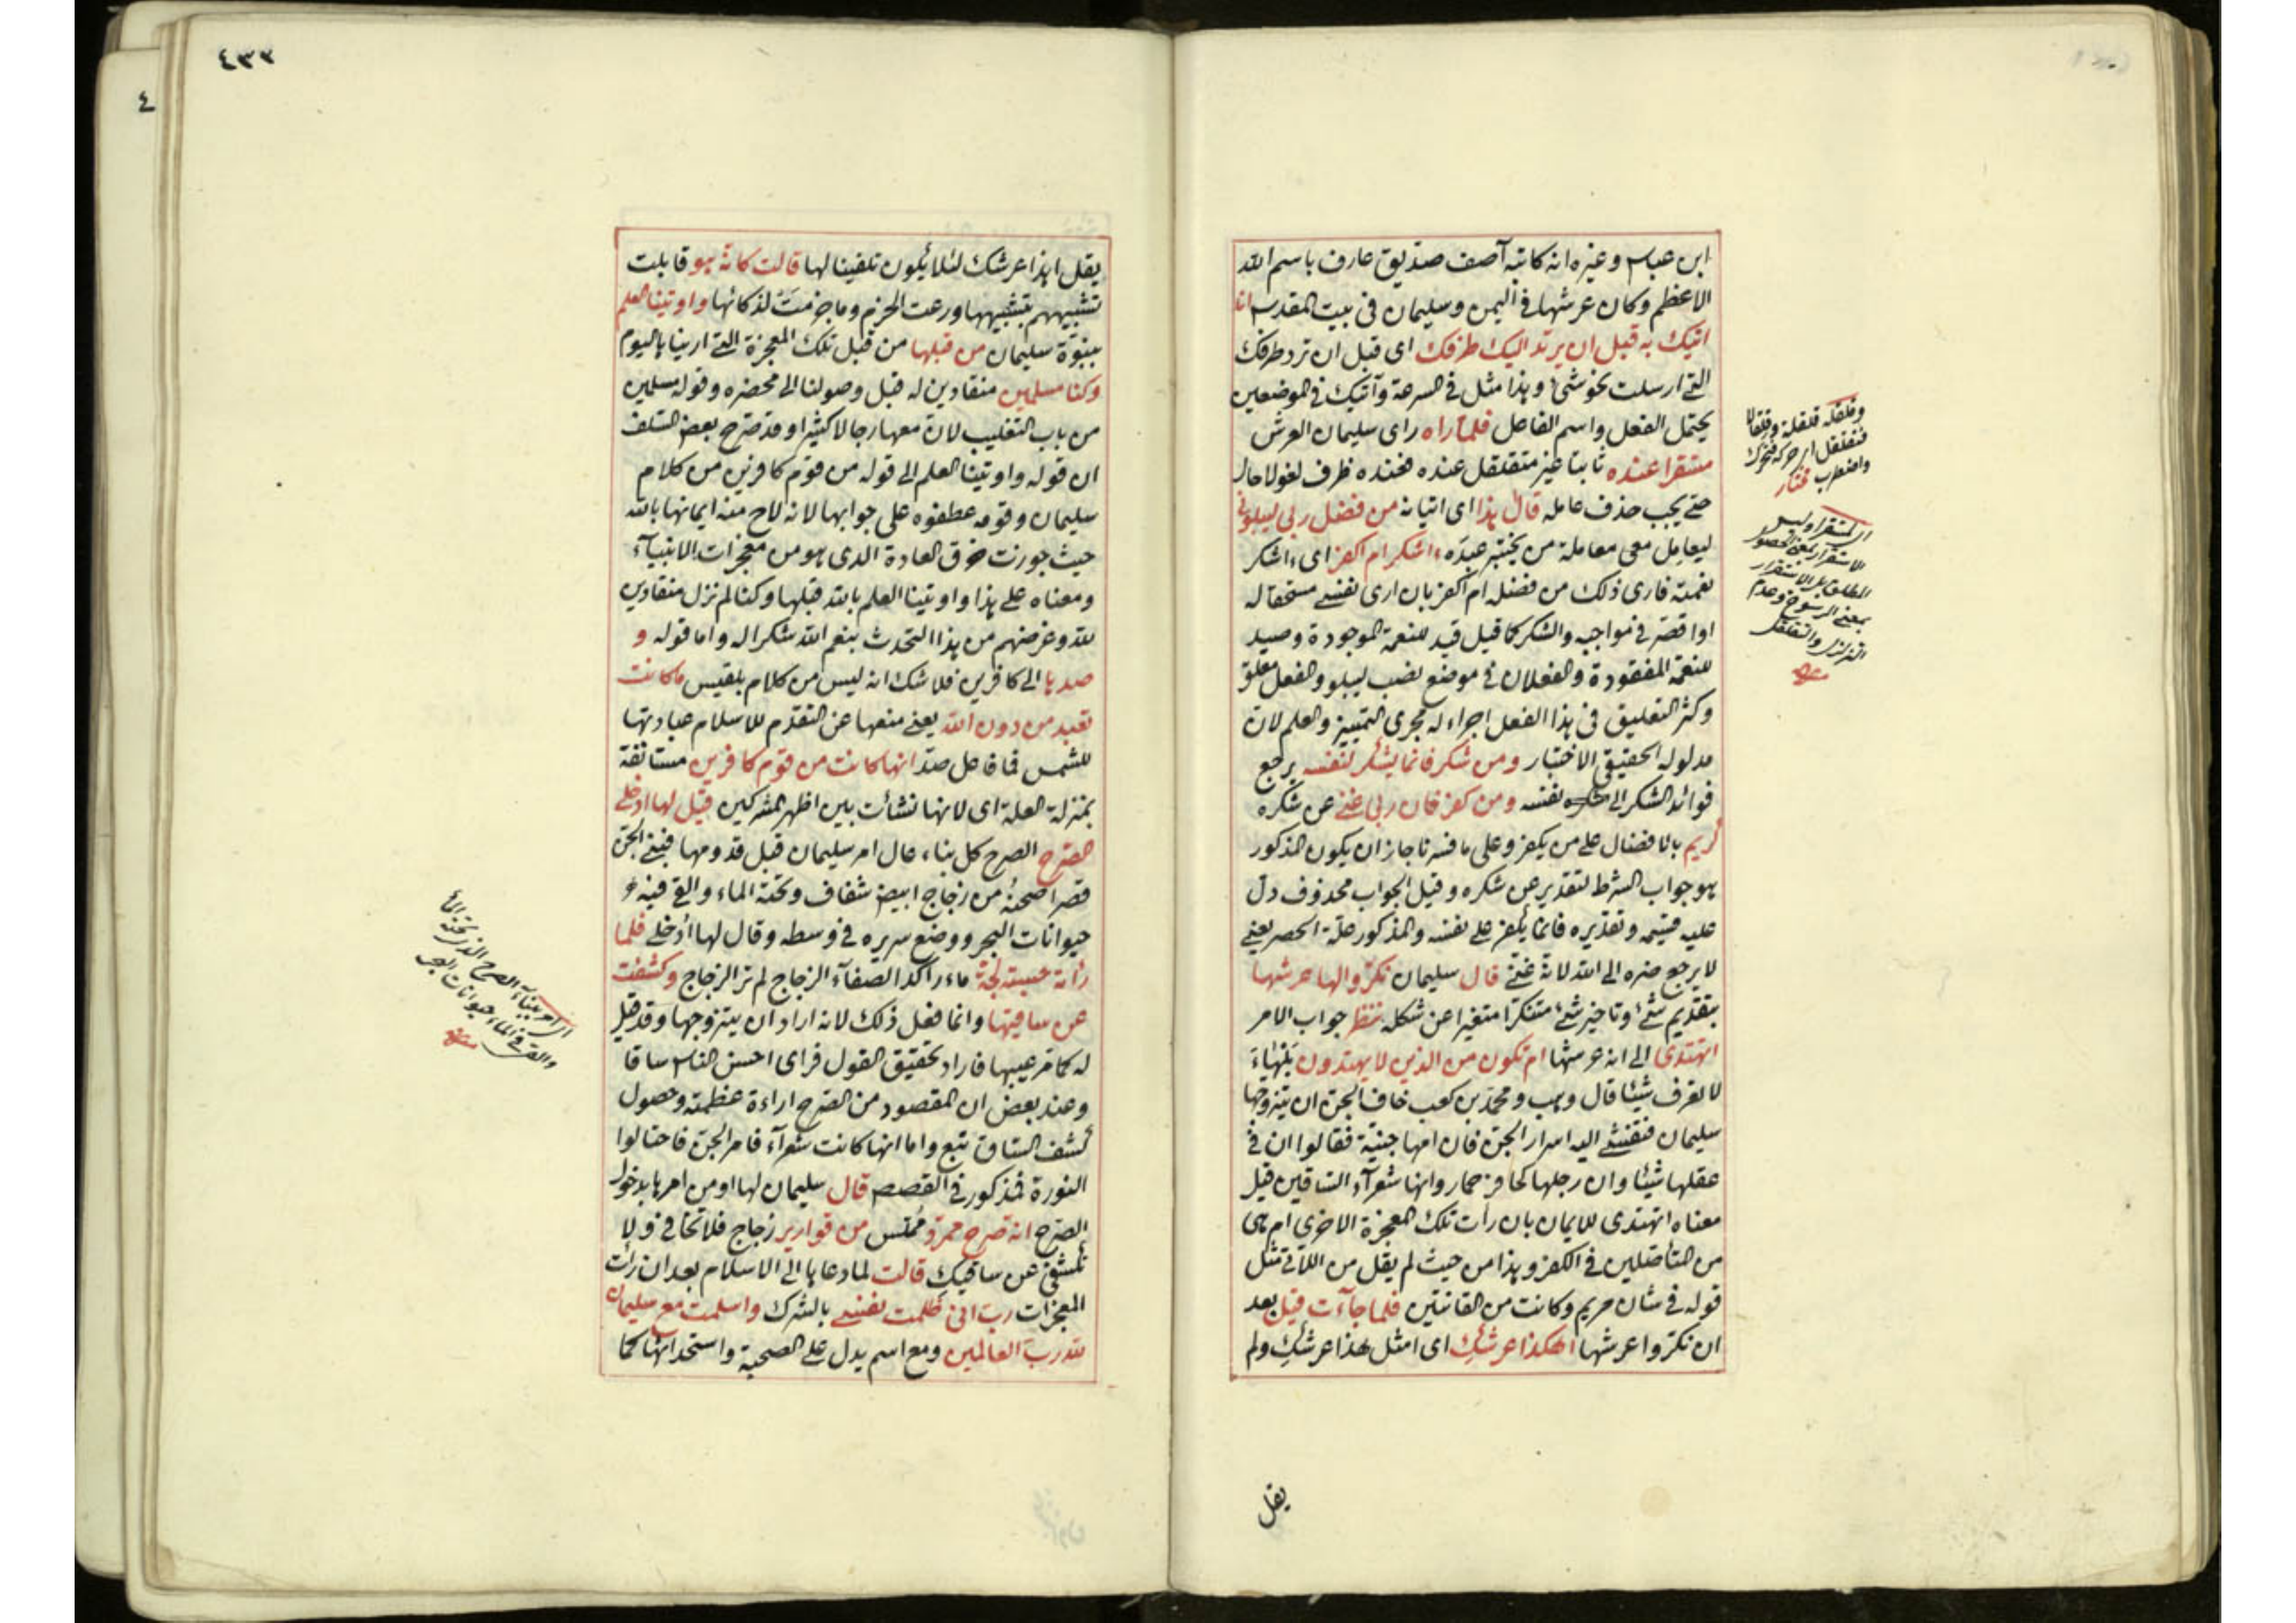 ابن عباس وغيره انه كاتبه آصف صديق عارف باسم الله
الاعظم وكان عرشها في اليمن وسليمان في بيت المقدس انا
اتيك به قبل ان يرتد اليك طرفك اى قبل ان ترد طرفك
التى ارسلت نحو شئ وهذا مثل في السرعة وآتيك في الموضعين
يحتمل الفعل واسم الفاعل فلما راه راى سليمان العرش
مستقرا عنده ثابتا غير متقلقل عنده فعنده ظرف لغو لا حال
حتى يجب حذف عامله قال هذا اى اتيانه من فضل ربى ليبلونى
ليعامل معى معاملة من يختبر عبده ءاشكر ام اكفر اى ءاشكر
نعمته فارى ذلك من فضله ام اكفر بان ارى نفسى مستحقا له
او اقصر في مواجبه والشكر كما قيل قيد للنعمة الموجودة وصيد
للنعمة المفقودة والفعلان في موضع نصب ليبلو والفعل معلق
وكثر التعليق في هذا الفعل اجراء له مجرى التمييز والعلم لان
مدلوله الحقيقى الاختبار ومن شكر فانما يشكر لنفسه يرجع
فوائد الشكر الى نفسه ومن كفر فان ربى غنى عن شكره
كريم بالافضال على من يكفر وعلى ما فسرنا جاز ان يكون المذكور
هو جواب الشرط لتقدير عن شكره وقيل الجواب محذوف دل
عليه قسيمه وتقديره فانما يكفر على نفسه والمذكور علة الحصر يعنى
لا يرجع ضره الى الله لانه غنى قال سليمان نكروا لها عرشها
بتقديم شئ وتاخير شئ متنكرا متغيرا عن شكله ننظر جواب الامر
اتهتدى الى انه عرشها ام تكون من الذين لا يهتدون بلهاء
لا تعرف شيئا قال وهب ومحمد بن كعب خاف الجن ان يتزوجها
سليمان فتفشى اليه اسرار الجن فان امها جنية فقالوا ان في
عقلها شيئا وان رجلها كحافر حمار وانها شعرآء الساقين قيل
معناه اتهتدى للايمان بان رأت تلك المعجزة الاخرى ام هى
من المتأصلين في الكفر وهذا من حيث لم يقل من اللاتى مثل
قوله في شان مريم وكانت من القانتين فلما جآءت قيل بعد
ان نكروا عرشها اهكذا عرشكِ اى امثل هذا عرشكِ ولم
وقلقله قلقلة وقلقالا
فتقلقل اى حركه فتحرك
واضطرب مختار
اى مستقرا وليس
الاستقرار بمعنى الحصول
المطلق بل الاستقرار
بمعنى الرسوخ وعدم
التزلزل والتقلقل
يقل
٤٣٣
٤
يقل اهذا عرشك لئلا يكون تلقينا لها قالت كانه هو قابلت
تشبيههم بتشبيهها ورعت الحزم وما جزمت لذكائها واوتينا العلم
بنبوة سليمان من قبلها من قبل تلك المعجزة التى ارينا ها اليوم
وكنا مسلمين منقادين له قبل وصولنا الى محضره وقوله مسلمين
من باب التغليب لان معها رجالا كثيرا وقد صرح بعض السلف
ان قوله واوتينا العلم الى قوله من قوم كافرين من كلام
سليمان وقومه عطفوه على جوابها لانه لاح منه ايمانها بالله
حيث جوزت خرق العادة الذى هو من معجزات الانبيآء
ومعناه على هذا واوتينا العلم بالله قبلها وكنا لم نزل منقادين
لله وغرضهم من هذا التحدث بنعم الله شكرا له واما قوله و
صدها الى كافرين فلا شك انه ليس من كلام بلقيس ما كانت
تعبد من دون الله يعنى منعها عن التقدم للاسلام عبادتها
للشمس فما فاعل صد انها كانت من قوم كافرين مستانفة
بمنزلة العلة اى لانها نشأت بين اظهر المشركين قيل لها ادخلى
الصرح الصرح كل بناء عال امر سليمان قبل قدومها فبنى الجن
قصرا صحنه من زجاج ابيض شفاف وتحته الماء والقى فيه
حيوانات البحر ووضع سريره في وسطه وقال لها ادخلى فلما
رأته حسبته لجة ماء راكدا لصفآء الزجاج لم تر الزجاج وكشفت
عن ساقيها وانما فعل ذلك لانه اراد ان يتزوجها وقد قيل
له كما مر عيبها فاراد تحقيق القول فراى احسن الناس ساقا
وعند بعض ان المقصود من الصرح اراءة عظمته وحصول
كشف الساق تبع واما انها كانت شعرآء فامر الجن فاحتالوا
النورة فمذكور في القصص قال سليمان لها او من امرها بدخول
الصرح انه صرح ممرد مملس من قوارير زجاج فلا تخافى ولا
تكشفى عن ساقيك قالت لما دعاها الى الاسلام بعد ان رأت
المعجزات رب انى ظلمت نفسى بالشرك واسلمت مع سليمان
لله رب العالمين ومع اسم يدل على الصحبة واستحداثها كما
اى امر ببناء الصرح الذى تحته الماء
والقى في الماء حيوانات البحر